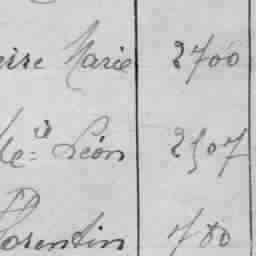 erre Marie 2700
Léon 2507
Florentin 780